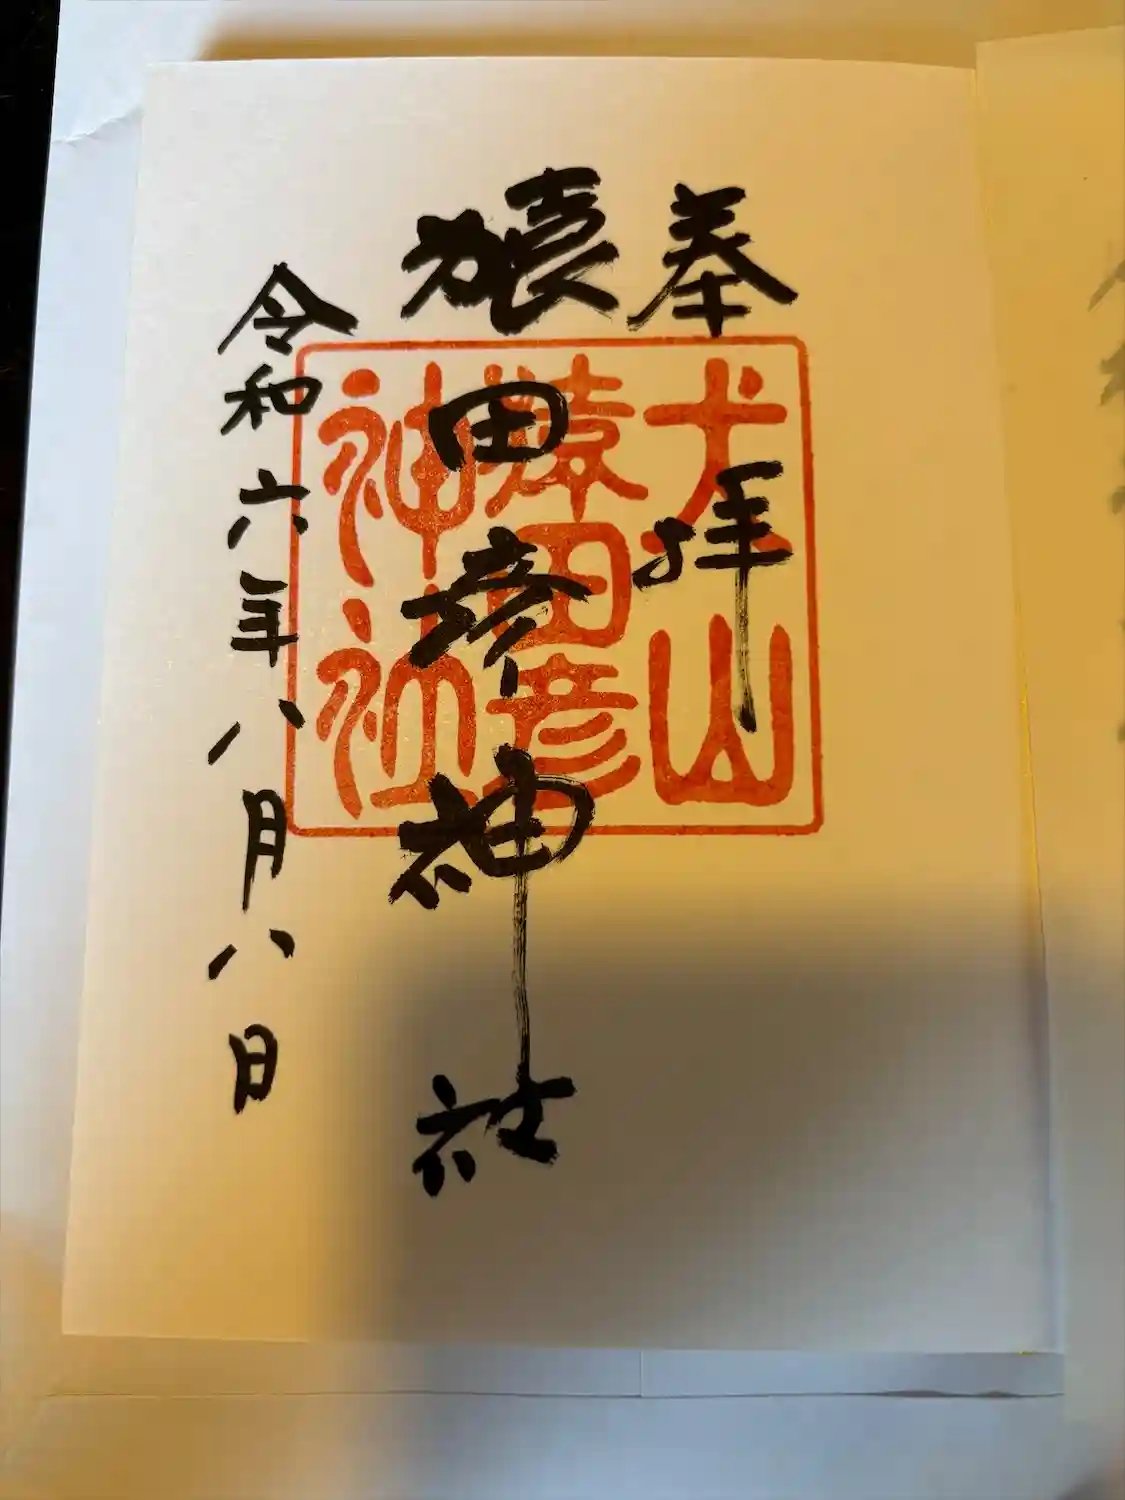 奉拝
猿田彦神社
令和六年八月八日
犬山
猿田彦
神社